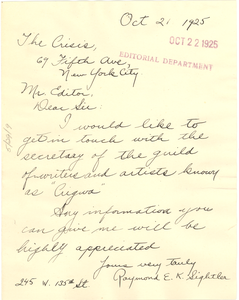 Oct 21 1925
OCT 22 1925
EDITORIAL DEPARTMENT
The Crisis,
69 Fifth Ave,
New York City
Mr. Editor,
Dear Sir:
I would like to
get in touch with the
secretary of the guild
of writers and artists known
as "Crigwa"
Any information you
can give me will be
highly appreciated
Yours very truly
Raymond E. K. Sightler
245 W. 135th St